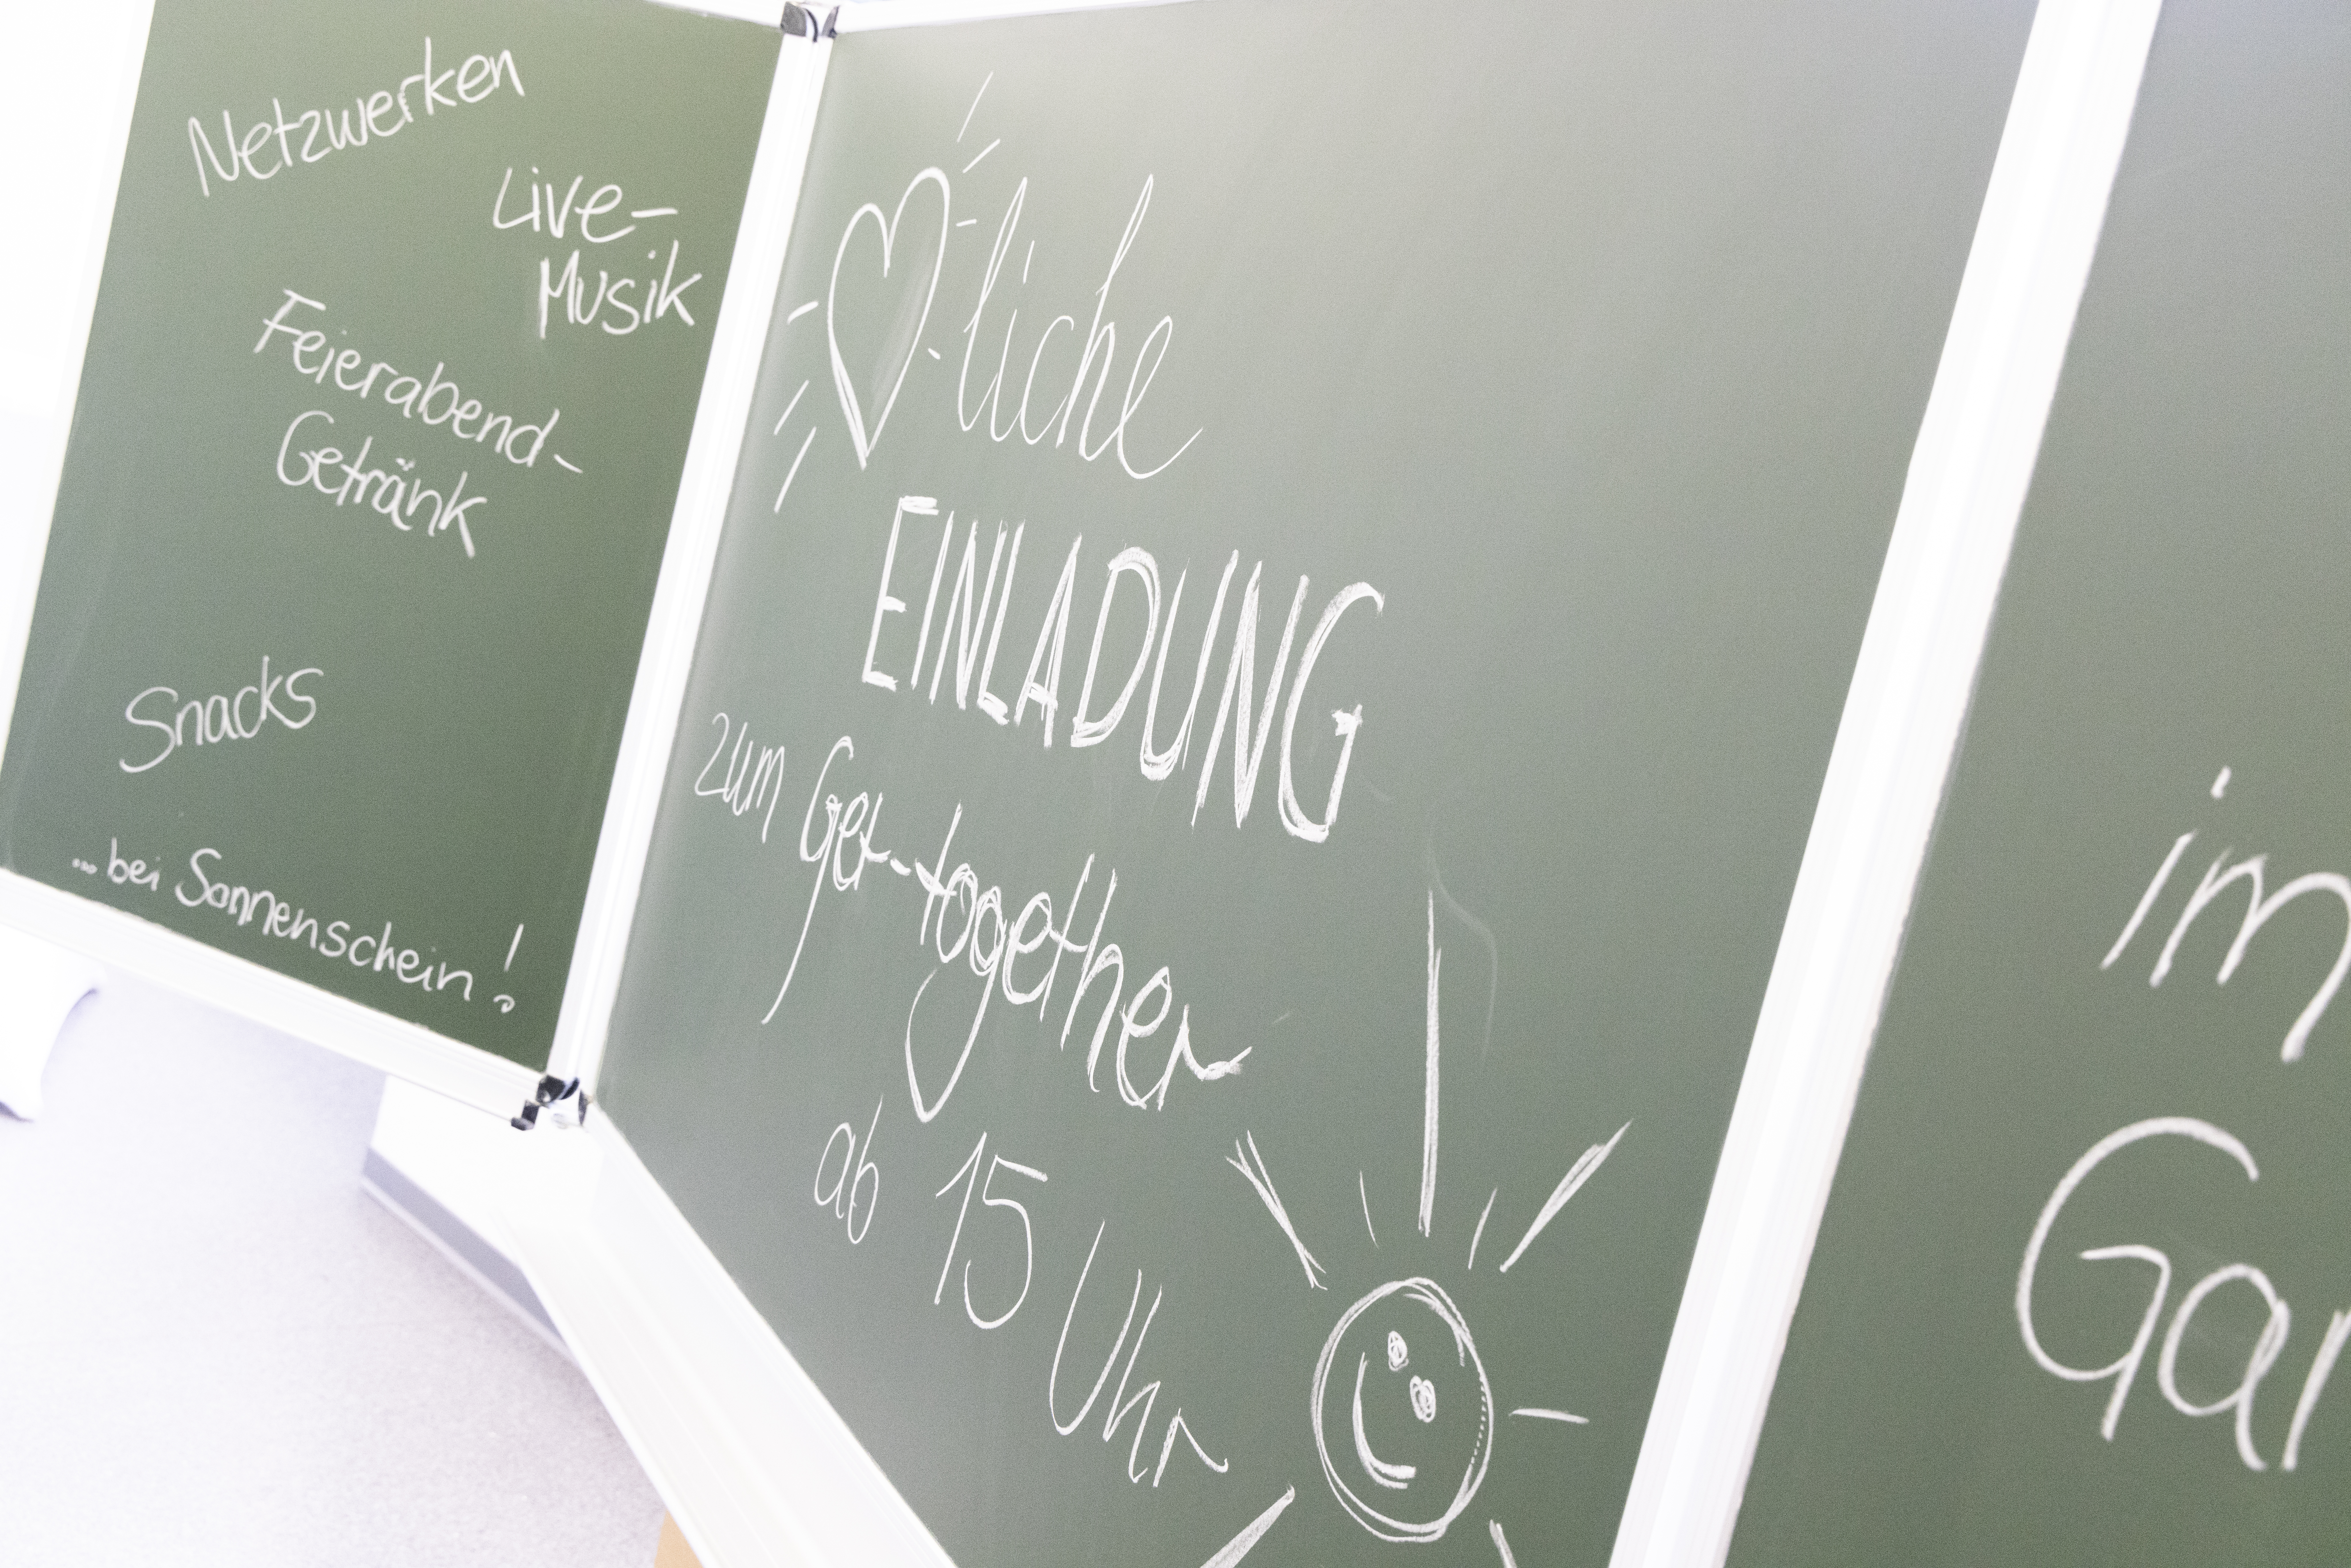 Netzwerken
Live-
Musik
Feierabend-
Getränk
Snacks
... bei Sonnenschein!
♡-liche
EINLADUNG
zum Get-together
ab 15 Uhr
im